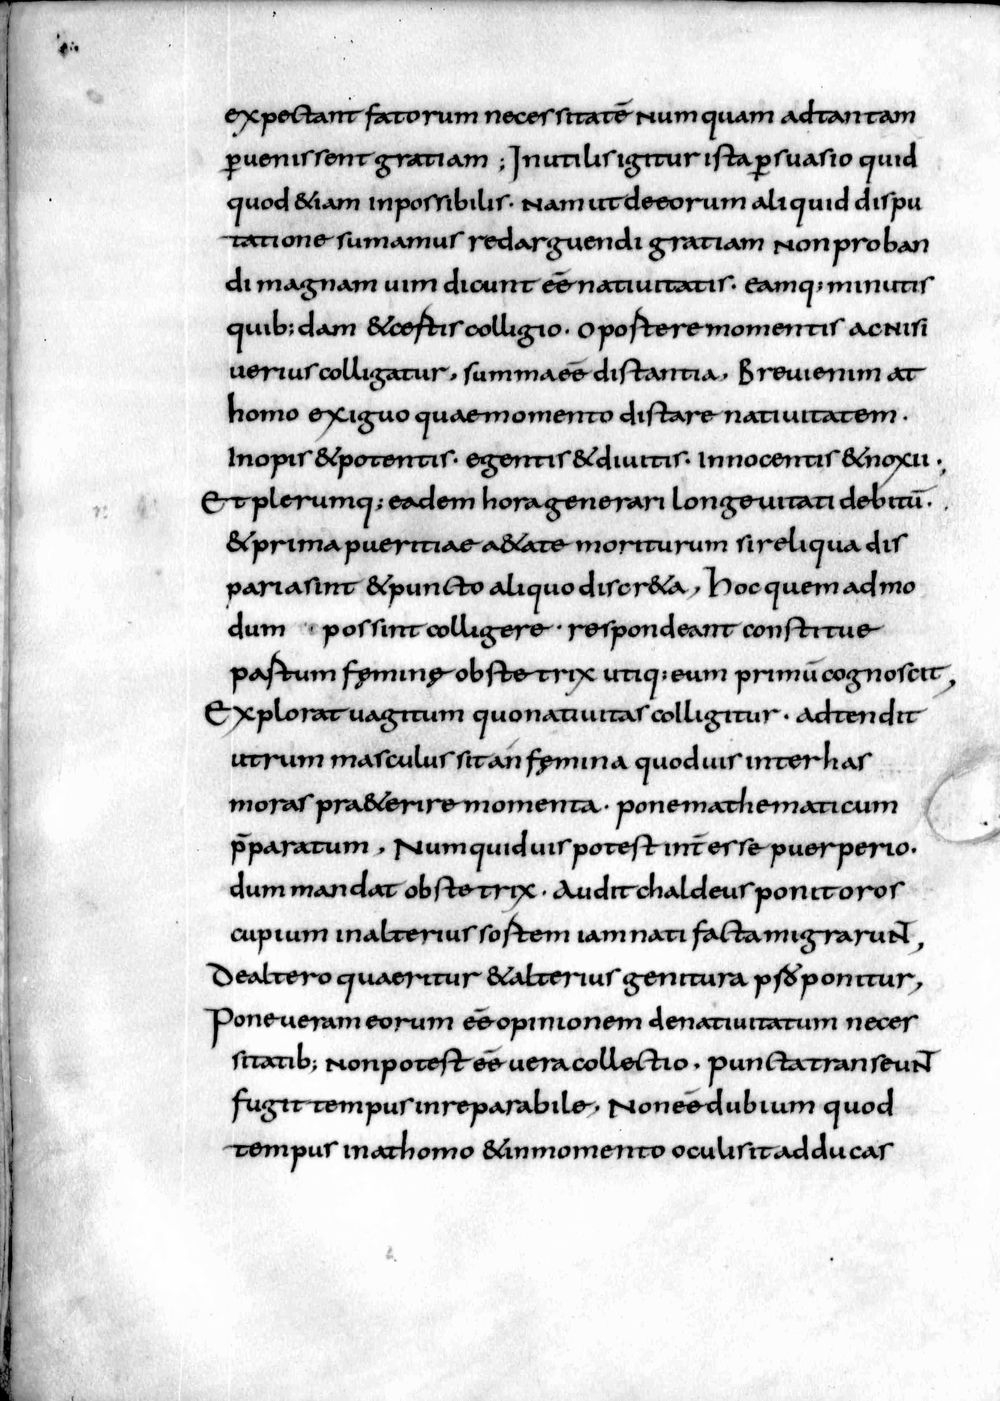 expectant fatorum necessitatē Numquam adtantam
p̱uenissent gratiam ; Jnutilis igitur ista p̱suasio quid
quod &iam inpossibilis. Nam ut de eorum aliquid dispu
tatione sumamus redarguendi gratiam Non proban
di magnam uim dicunt eē natiuitatis. eamq; minutis
quib; dam &cestis colligio. opostere momentis ac Nisi
uerius colligatur, summa eē distantia, Breui enim at
homo exiguo quae momento distare natiuitatem.
Inopis & potentis. egentis & diuitis. Innocentis & noxii.,
Et plerumq; eadem hora generari longe uitati debitū.
& prima pueritiae a&ate moriturum si reliqua dis
paria sint & puncto aliquo discr&a, Hoc quem admo
dum possint colligere. respondeant constitue
pastum fęminę obstetrix utiq; eum primū cognoscit,
Explorat uagitum quo natiuitas colligitur. adtendit
utrum masculus sit an fęmina quod uis inter has
moras pra&erire momenta. pone mathematicum
p̄paratum, Numquid uis potest int̄esse puerperio.
dum mandat obstetrix. Audit chaldeus ponit oros
cupium in alterius sostem iam nati facta migrarunt,
De altero quaeritur & alterius genitura psð ponitur,
Pone ueram eorum eē opinionem de natiuitatum neces
sitatib; Non potest eē uera collectio, puncta transeunt
fugit tempus inreparabile, Non eē dubium quod
tempus in athomo & in momento oculi sit adducas